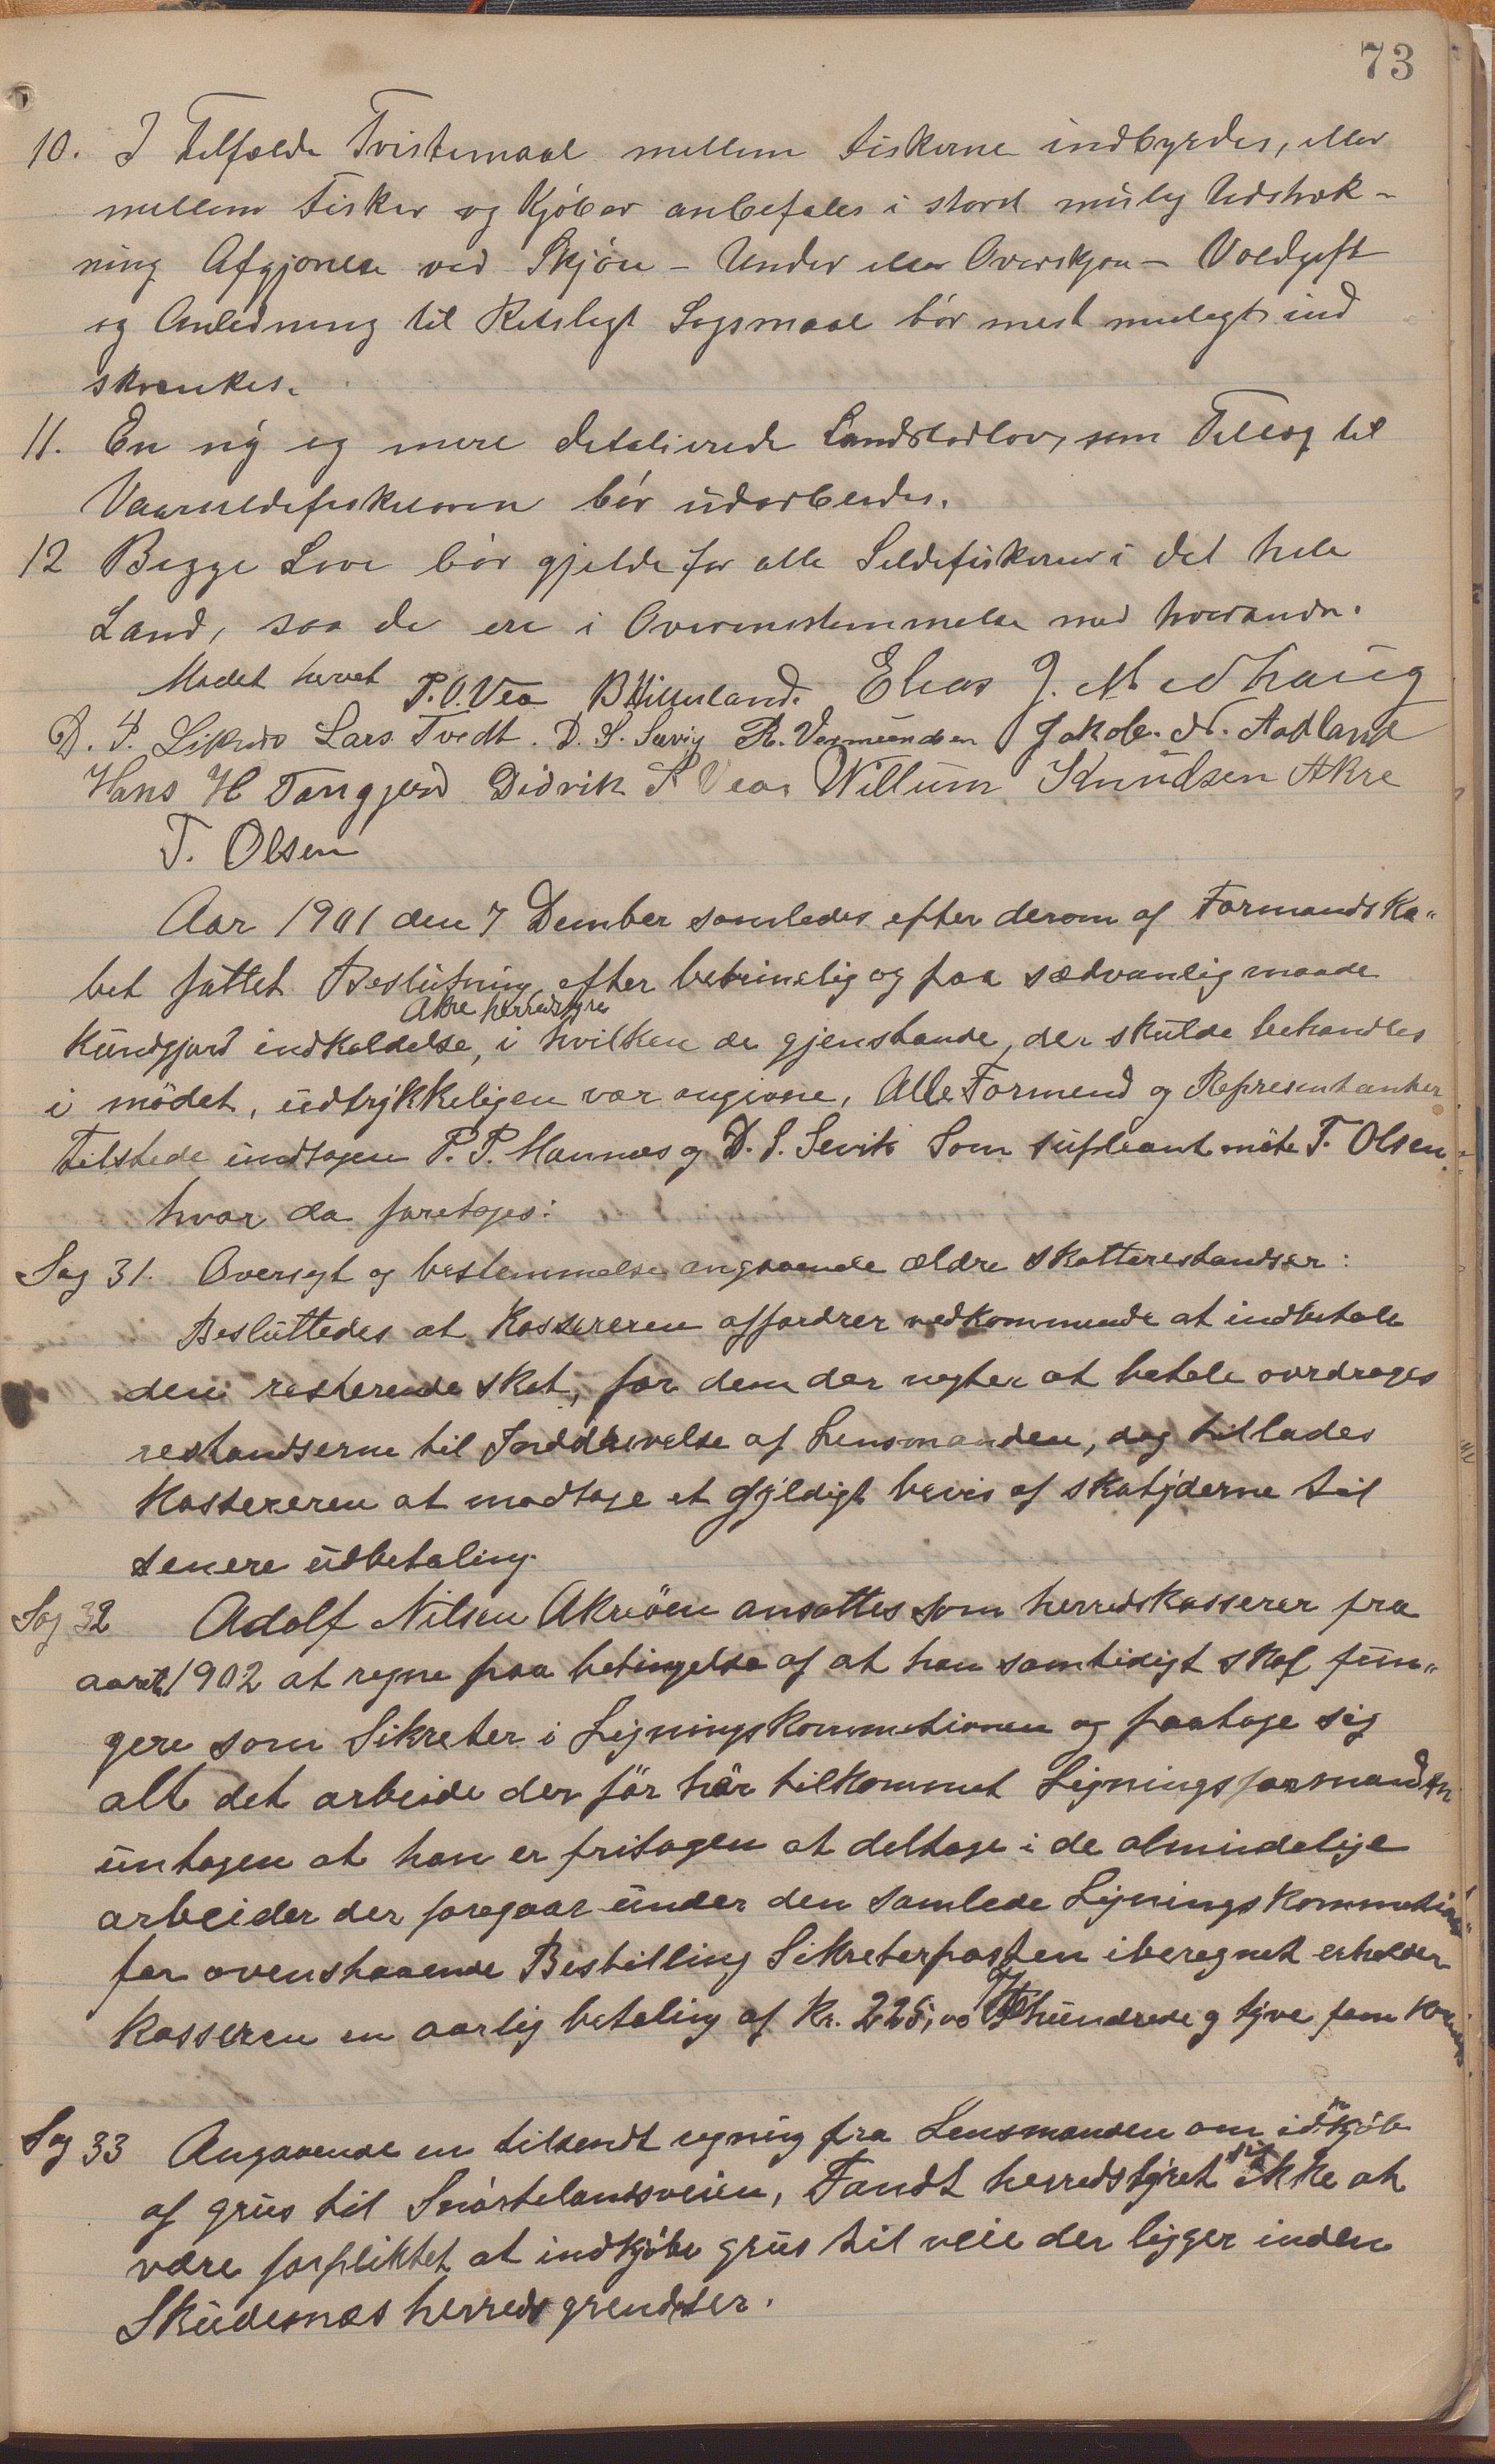 73
10. I Tilfælde Tvistemaal mellem Fiskerne indbyrdes, eller
mellem Fisker og Kjöber anbefales i störst mulig Udstræk-
ning Afgjörelse ved Skjön - Under eller Overskjön - Voldgift
og Anledning til Retsligt Sogsmaal bör mest muligt ind
skrænkes.
11. En ny og mere detalierede Landslodlov, som Tillæg til
Vaarsildefiskeloven bör udarbeides.
12 Begge Love bör gjelde for alle Sildefiskerier i det hele
Land, saa de ere i Overenstemmelse med hverandre.
Mødet hævet P. O. Vea B Hillesland. Elias J. Medhaug
D. P. Liknes Lars Tvedt. D. S. Sævig R. Vermundsen Jakob. N. Aadland
Hans H Tangjerd Didrik P Vea. Willum Knudsen Akre
T. Olsen
Aar 1901 den 7 Dember samledes efter derom af Formandska"
bet fattet Beslutning, efter betimelig og paa sædvanlig maade
Akre herredstyre
kundgjord indkaldelse, i hvilken de gjenstande, der skulde behandles
i mödet, udtrykkeligen var angivne, Alle Formend og Representanter
Tilstede undtagen P. P. Mannes og D. S. Sevik Som supleant möte T. Olsen.
hvor da foretoges:
Sag 31. Oversigt og bestemmelse angaaende ældre skatterestandser:
Besluttedes at Kassereren affordrer vedkommende at indbetale
den resterende skat, for dem der negter at betale overdrages
restandserne til Inddrivelse af Lensmanden, dog tillades
Kassereren at modtage et gyldigt bevis af skatyderne til
senere udbetaling.
Sag 32 Adolf Nilsen Akreöen ansattes som herredskasserer fra
aaret 1902 at regne paa betingelse af at han samtidigt skal fun"
gere som Sikreter i Ligningskommetionen og paatage sig
alt det arbeide der för har tilkommet Ligningsformanden
untagen at han er fritagen at deltage i de almindelige
arbeider der foregaar under den samlede Ligningskommetion"
for ovenstaaende Bestilling Sikreterposten iberegnet erholder
Kasseren en aarlig betaling af Kr. 225,00 To hundrede og tyve fem Kroner
Sag 33 Angaaende en tilsendt regning fra Lensmanden om indkjöb
af grus til Snörtelandsveien, Fandt herredstyret sig ikke at
være forpliktet at indkjöbe grus til veie der ligger inden
Skudesnæs herreds grendser.